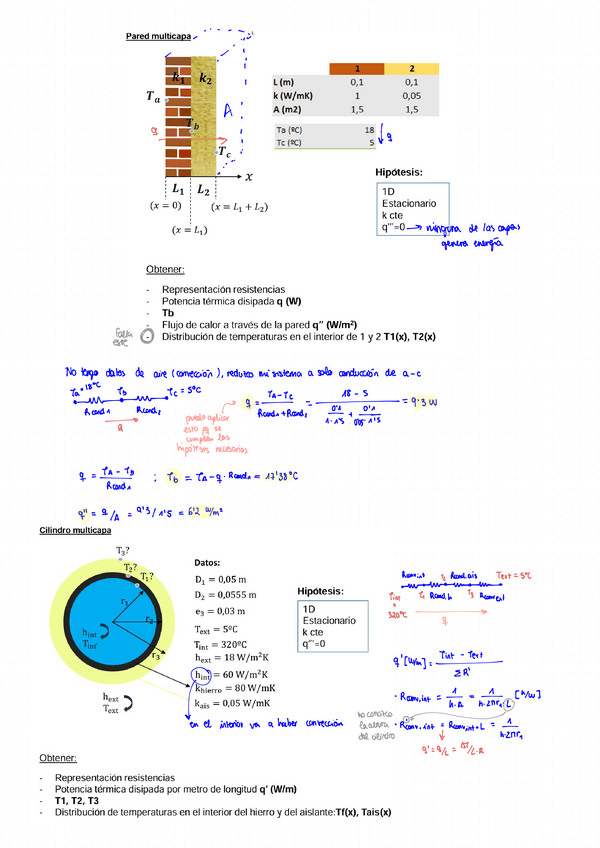 Pared multicapa
k₁ k₂
Tₐ
A
T_b
q
T_c
x
L₁ L₂
(x = 0) (x = L₁ + L₂)
(x = L₁)
1 2
L (m) 0,1 0,1
k (W/mK) 1 0,05
A (m2) 1,5 1,5
Ta (ºC) 18
Tc (ºC) 5
q
Hipótesis:
1D
Estacionario
k cte
q'''=0 → ninguna de las capas
genera energía
Obtener:
- Representación resistencias
- Potencia térmica disipada q (W)
- Tb
- Flujo de calor a través de la pared q'' (W/m²)
Falta este
- Distribución de temperaturas en el interior de 1 y 2 T1(x), T2(x)
No tengo datos de aire (convección), reduzco mi sistema a solo conducción de a-c
Ta=18ºC Tb Tc = 5ºC
Rcond1 Rcond2
q
q = (TA - TC) / (Rcond1 + Rcond2) = (18 - 5) / (0'1/(1·1'5) + 0'1/(0'05·1'5)) = 9'3 W
puedo aplicar
esto pq se
cumplen las
hipótesis necesarias
q = (TA - Tb) / Rcond1 ; Tb = TA - q · Rcond1 = 17'38ºC
q'' = q/A = 9'3/1'5 = 6'2 W/m²
Cilindro multicapa
T₃?
T₂?
T₁?
r₁
r₂
r₃
h_int
T_int
h_ext
T_ext
Datos:
D₁ = 0,05 m
D₂ = 0,0555 m
e₃ = 0,03 m
T_ext = 5ºC
T_int = 320ºC
h_ext = 18 W/m²K
h_int = 60 W/m²K
k_hierro = 80 W/mK
k_ais = 0,05 W/mK
en el interior va a haber convección
Hipótesis:
1D
Estacionario
k cte
q'''=0
Rconv,int T2 Rcond,ais Text = 5ºC
Tint T1 Rcond,h T3 Rconv,ext
320ºC
q
q' [W/m] = (Tint - Text) / ΣR'
· Rconv,int = 1/(h·A) = 1/(h·2πr₁·L) [K/W]
no conozco
la altura
del cilindro
· R'conv,int = Rconv,int · L = 1/(h·2πr₁)
q' = q/L = ΔT/L·R
Obtener:
- Representación resistencias
- Potencia térmica disipada por metro de longitud q' (W/m)
- T1, T2, T3
- Distribución de temperaturas en el interior del hierro y del aislante:Tf(x), Tais(x)